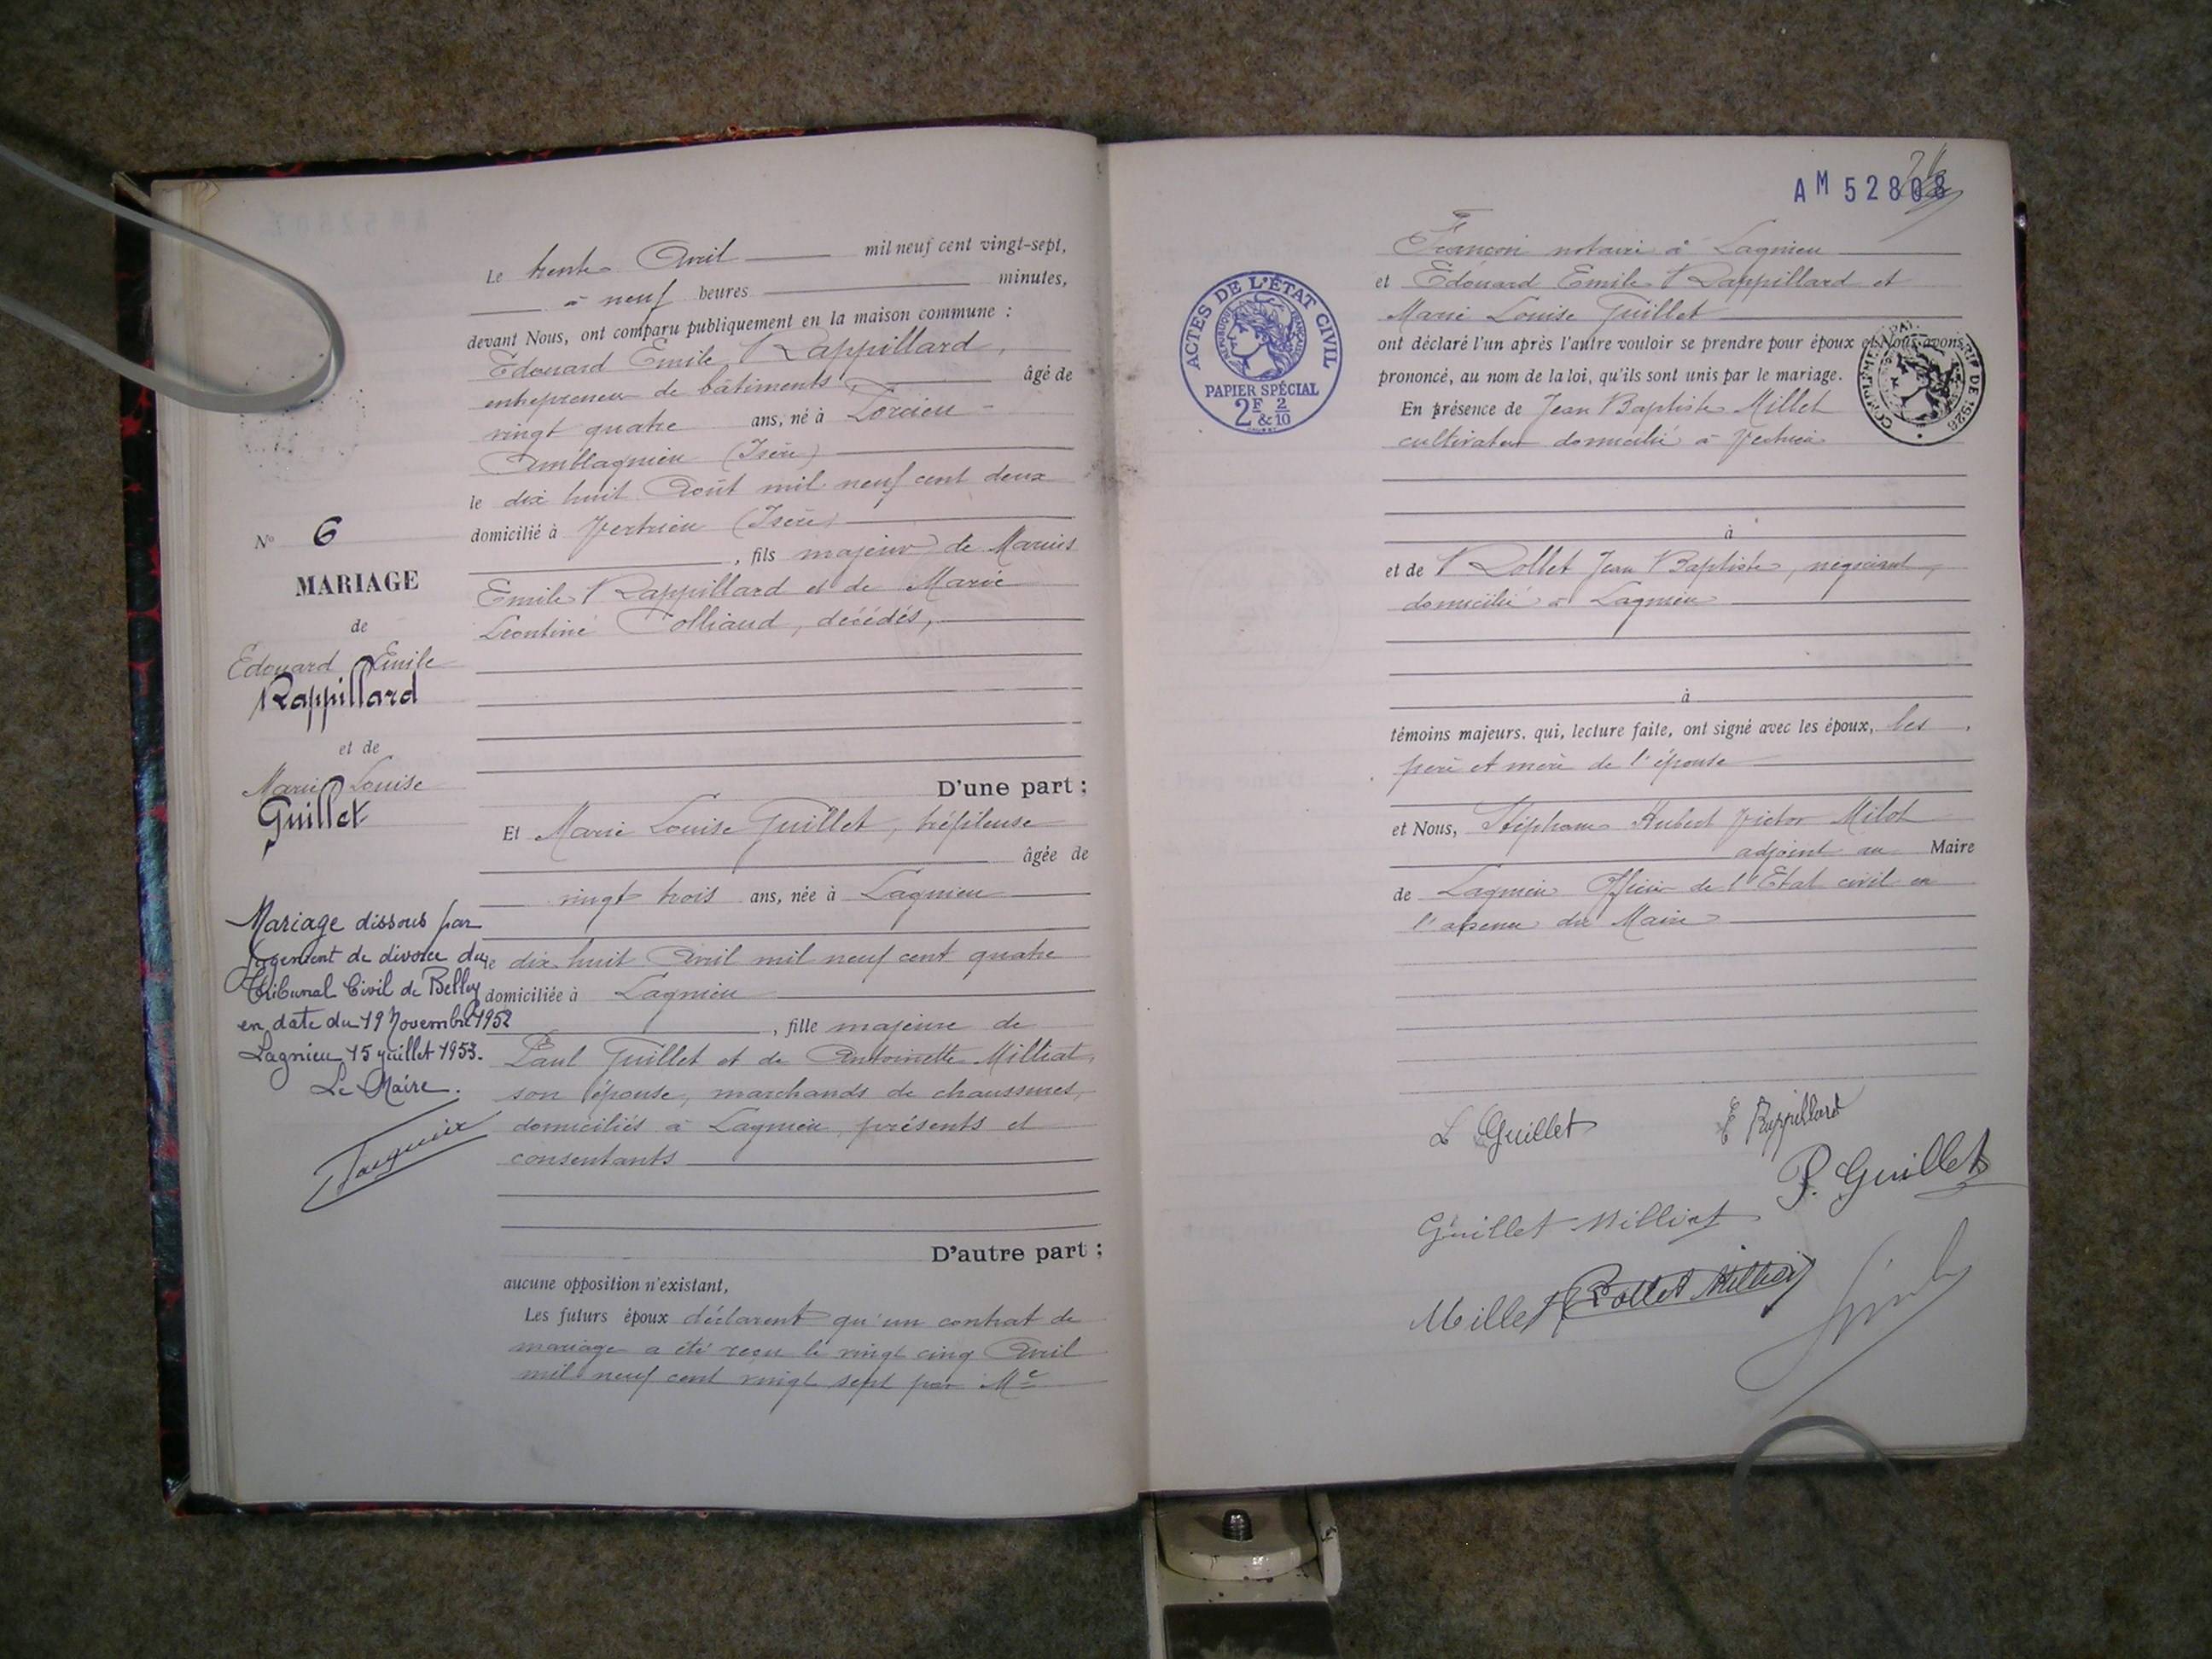 Le trente Avril mil neuf cent vingt-sept,
à neuf heures minutes,
devant Nous, ont comparu publiquement en la maison commune :
Edouard Emile Rappillard,
entrepreneur de bâtiments, âgé de
vingt quatre ans, né à Torcieu
Amblagnieu (Isère)
le dix huit Août mil neuf cent deux
domicilié à Vertrieu (Isère)
, fils majeur de Marius
Emile Rappillard et de Marie
Léontine Colliaud, décédés,
D'une part ;
Et Marie Louise Guillet, tréfileuse
âgée de
vingt trois ans, née à Lagnieu
le dix huit Avril mil neuf cent quatre
domiciliée à Lagnieu
, fille majeure de
Paul Guillet et de Antoinette Milliat,
son épouse, marchands de chaussures,
domiciliés à Lagnieu, présents et
consentants
D'autre part ;
aucune opposition n'existant,
Les futurs époux déclarent qu'un contrat de
mariage a été reçu le vingt cinq Avril
mil neuf cent vingt sept par Me
No 6
MARIAGE
de
Edouard Emile
Rappillard
et de
Marie Louise
Guillet
Mariage dissous par
jugement de divorce du
Tribunal Civil de Belley
en date du 19 Novembre 1952
Lagnieu 15 juillet 1953.
Le Maire.
AM 52808
Françon notaire à Lagnieu
et Edouard Emile Rappillard et
Marie Louise Guillet
ont déclaré l'un après l'autre vouloir se prendre pour époux et Nous avons
prononcé, au nom de la loi, qu'ils sont unis par le mariage.
En présence de Jean Baptiste Millet
cultivateur domicilié à Vertrieu
à
et de Rollet Jean Baptiste, négociant,
domicilié à Lagnieu
à
témoins majeurs, qui, lecture faite, ont signé avec les époux, les
père et mère de l'épouse
et Nous, Stéphane Hubert Victor Milot
adjoint au Maire
de Lagnieu Officier de l'Etat civil en
l'absence du Maire
L Guillet
E Rappillard
P. Guillet
Guillet Milliat
Millet
Rollet Milliat
ACTES DE L'ÉTAT CIVIL
RÉPUBLIQUE FRANÇAISE
PAPIER SPÉCIAL
2F & 2/10